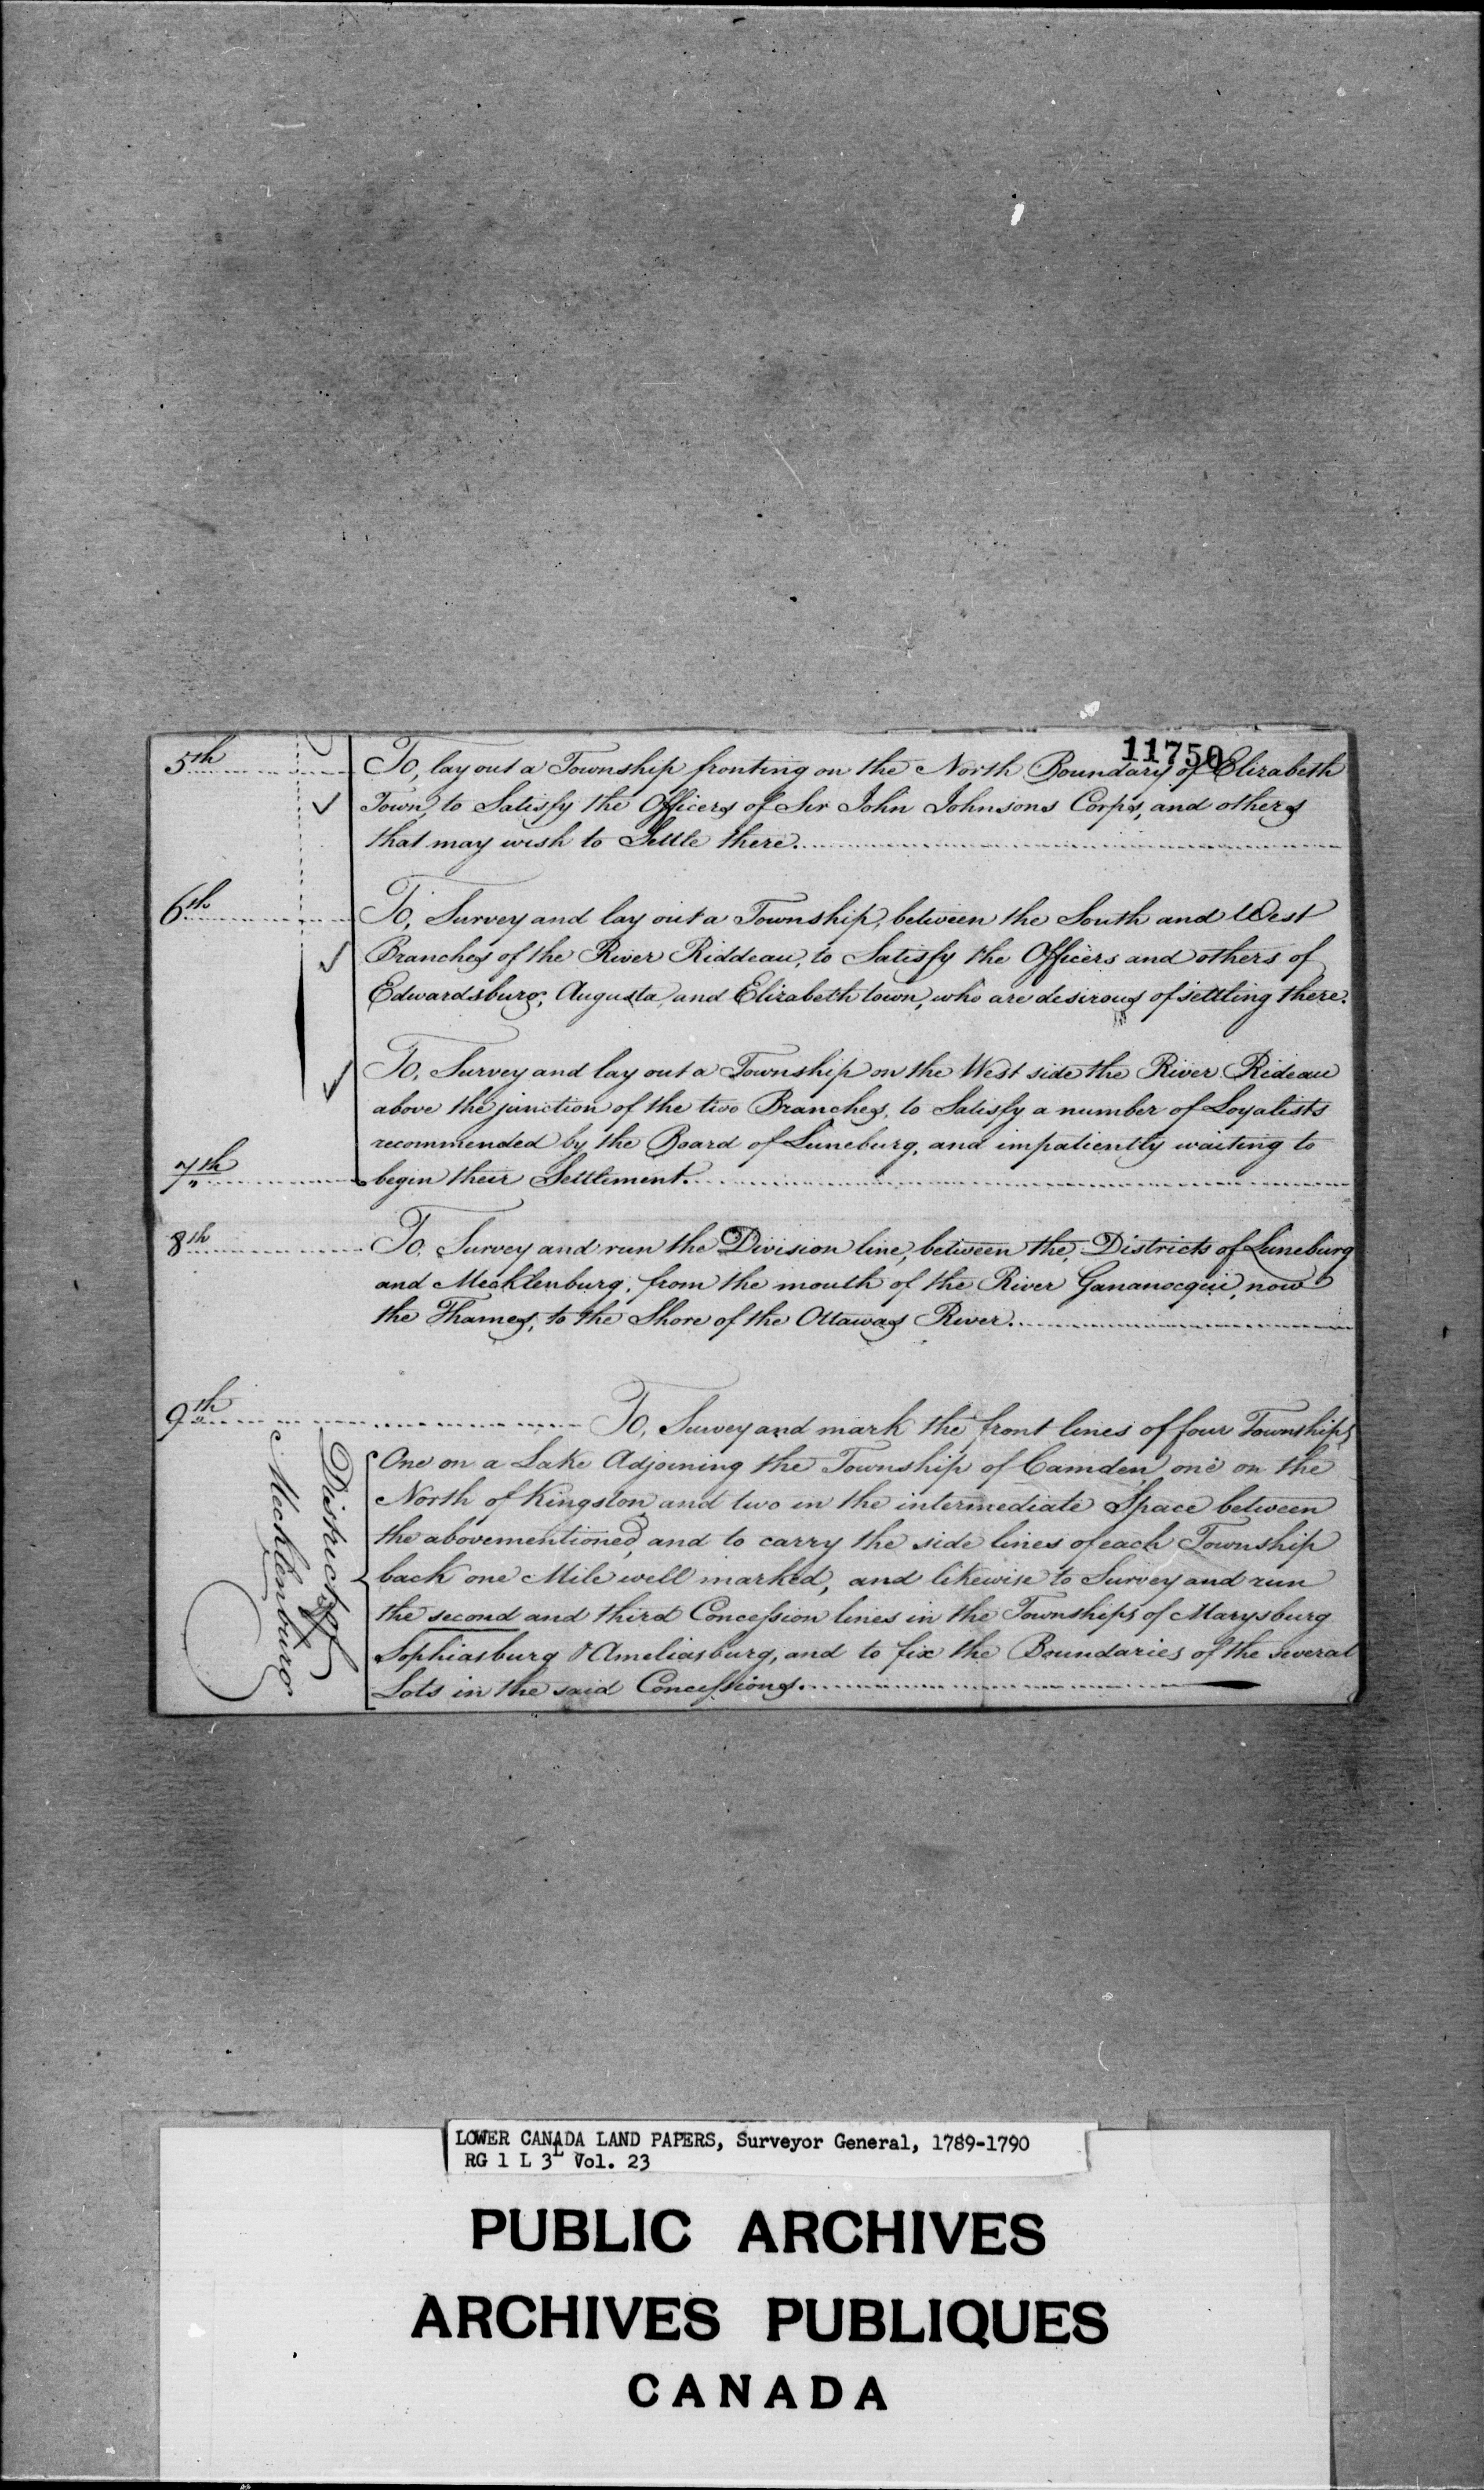 11750
5th To, lay out a Township fronting on the North Boundary of Elizabeth
Town, to Satisfy the Officers of Sir John Johnsons Corps, and others
that may wish to Settle there.
6th To, Survey and lay out a Township, between the South and West
Branches of the River Riddeau, to Satisfy the Officers and others of
Edwardsburg, Augusta, and Elizabeth town, who are desirous of settling there.
To, Survey and lay out a Township on the West side the River Rideau
above the junction of the two Branches, to Satisfy a number of Loyalists
recommended by the Board of Luneburg, and impatiently waiting to
7th begin their Settlement.
8th To, Survey and run the Division line, between the, Districts of Luneburg
and Mecklenburg, from the mouth of the River Gananocqui, now
the Thames, to the Shore of the Ottawas River.
9th To, Survey and mark the front lines of four Townships
District of
Mecklenburg
One on a Lake Adjoining the Township of Camden, one on the
North of Kingston and two in the intermediate Space between
the abovementioned, and to carry the side lines of each Township
back one Mile well marked, and likewise to Survey and run
the second and third Concession lines in the Townships of Marysburg
Sophiasburg & Ameliasburg, and to fix the Boundaries of the several
Lots in the said Concessions.
LOWER CANADA LAND PAPERS, Surveyor General, 1789-1790
RG 1 L 3L Vol. 23
PUBLIC ARCHIVES
ARCHIVES PUBLIQUES
CANADA